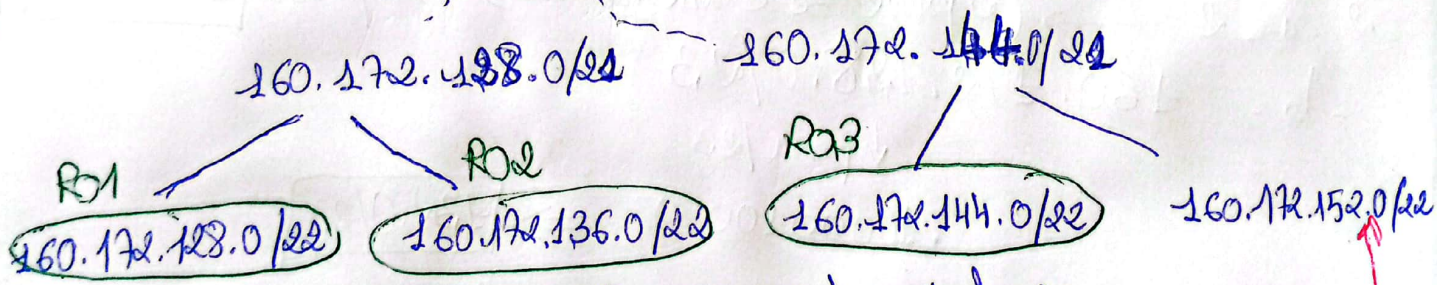 160.172.128.0/21 160.172.144.0/21
RO1 RO2 RO3
160.172.128.0/22 160.172.136.0/22 160.172.144.0/22 160.172.152.0/22